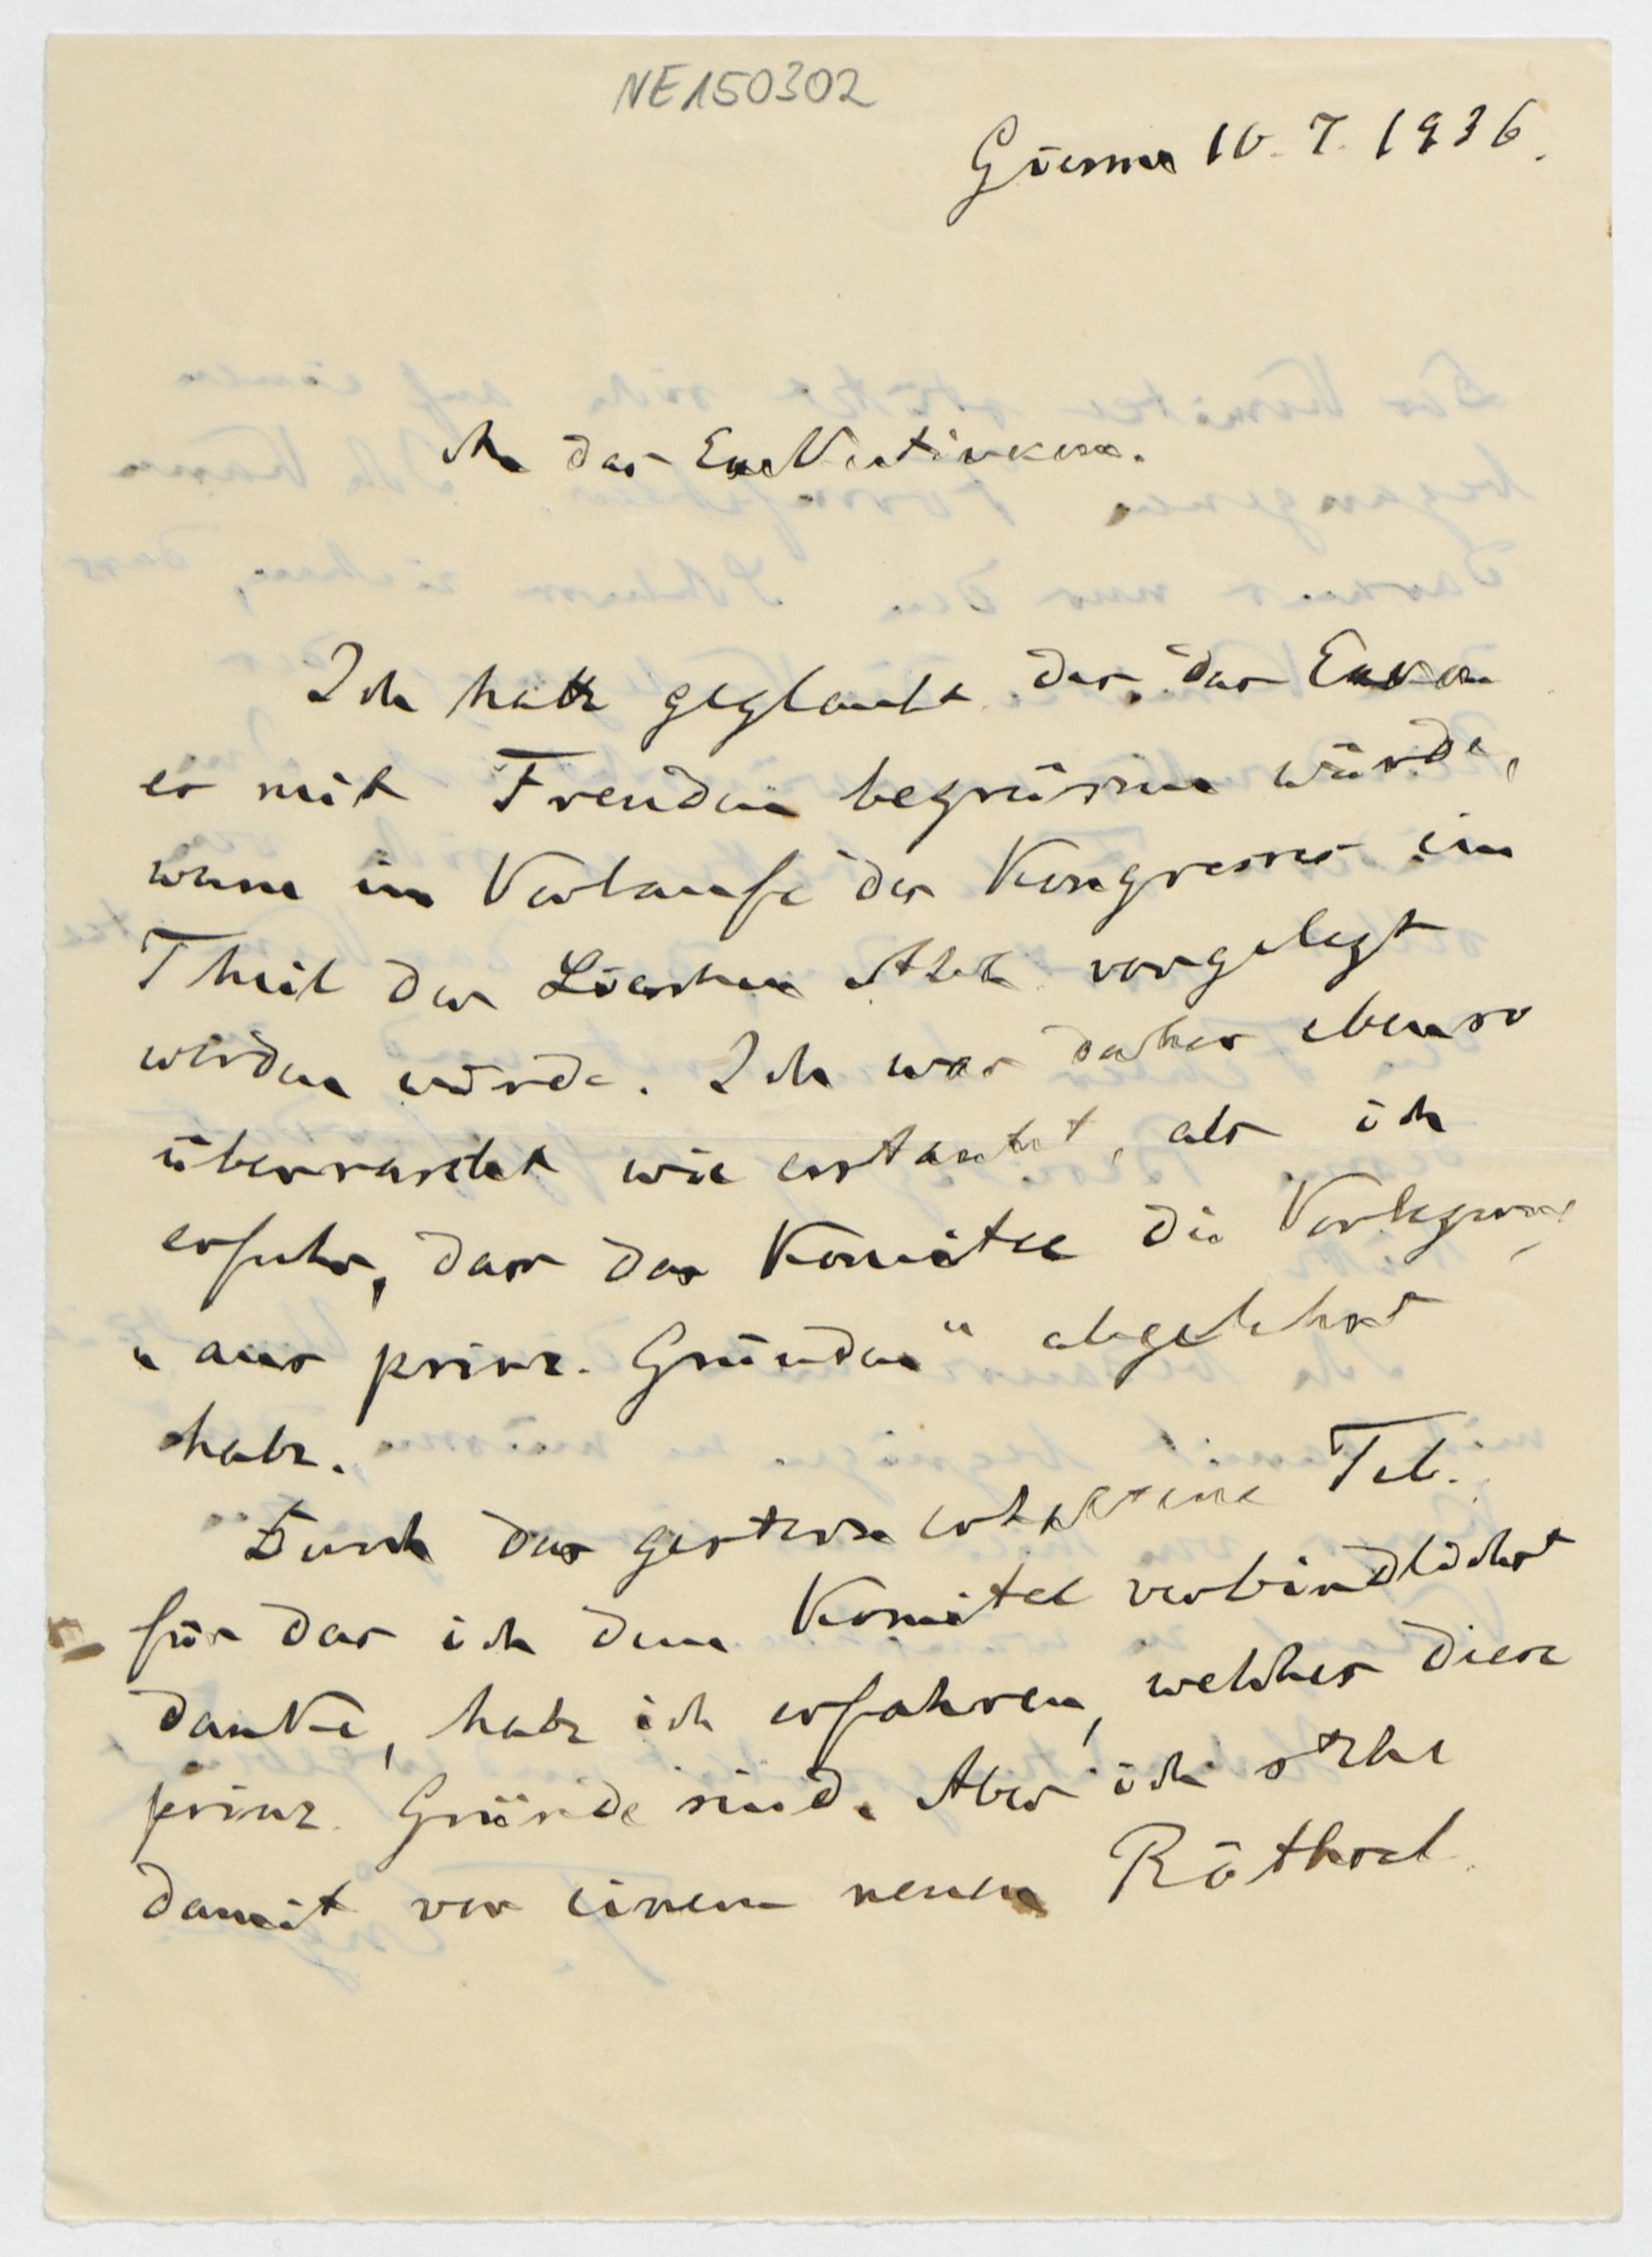 NE150302
10. 7. 1936.
An das Exekutivkom.
Ich habe geglaubt das, das
es mit Freuden begrüssen würde,
wenn im Verlaufe des Kongresses ein
Theil der vorgelegt
werden würde. Ich war daher ebenso
überrascht wie erstaunt, als ich
erfuhr, dass das Komitee die Vorlegung
„aus prinz. Gründen" abgelehnt
habe.
Durch das gestern erhaltene Tel.
für das ich dem Komitee verbindlichst
danke, habe ich erfahren, welches diese
prinz. Gründe sind. Aber ich stehe
damit vor einem neuen Räthsel.